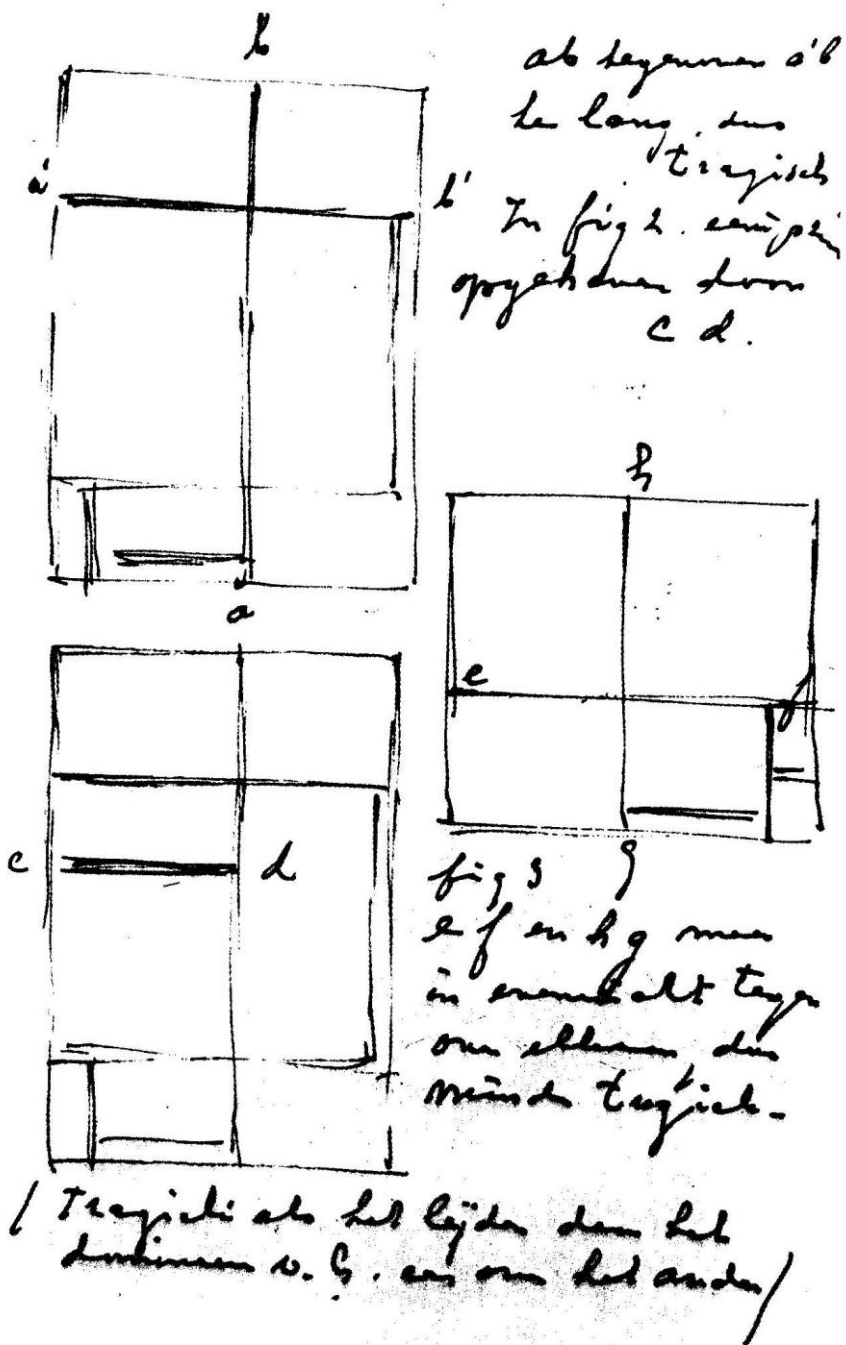 b
ab tegenover a'b
te lang, dus
tragisch
a'
b'
In fig 2. eenigszin
opgeheven door
c d.
a
h
e
f
c
d
fig 3
g
e f en h g meer
in evenwicht tegen
over elkaar, dus
minder tragisch-
/ Tragiek als het lijden door het
domineeren v. h. een over het ander/